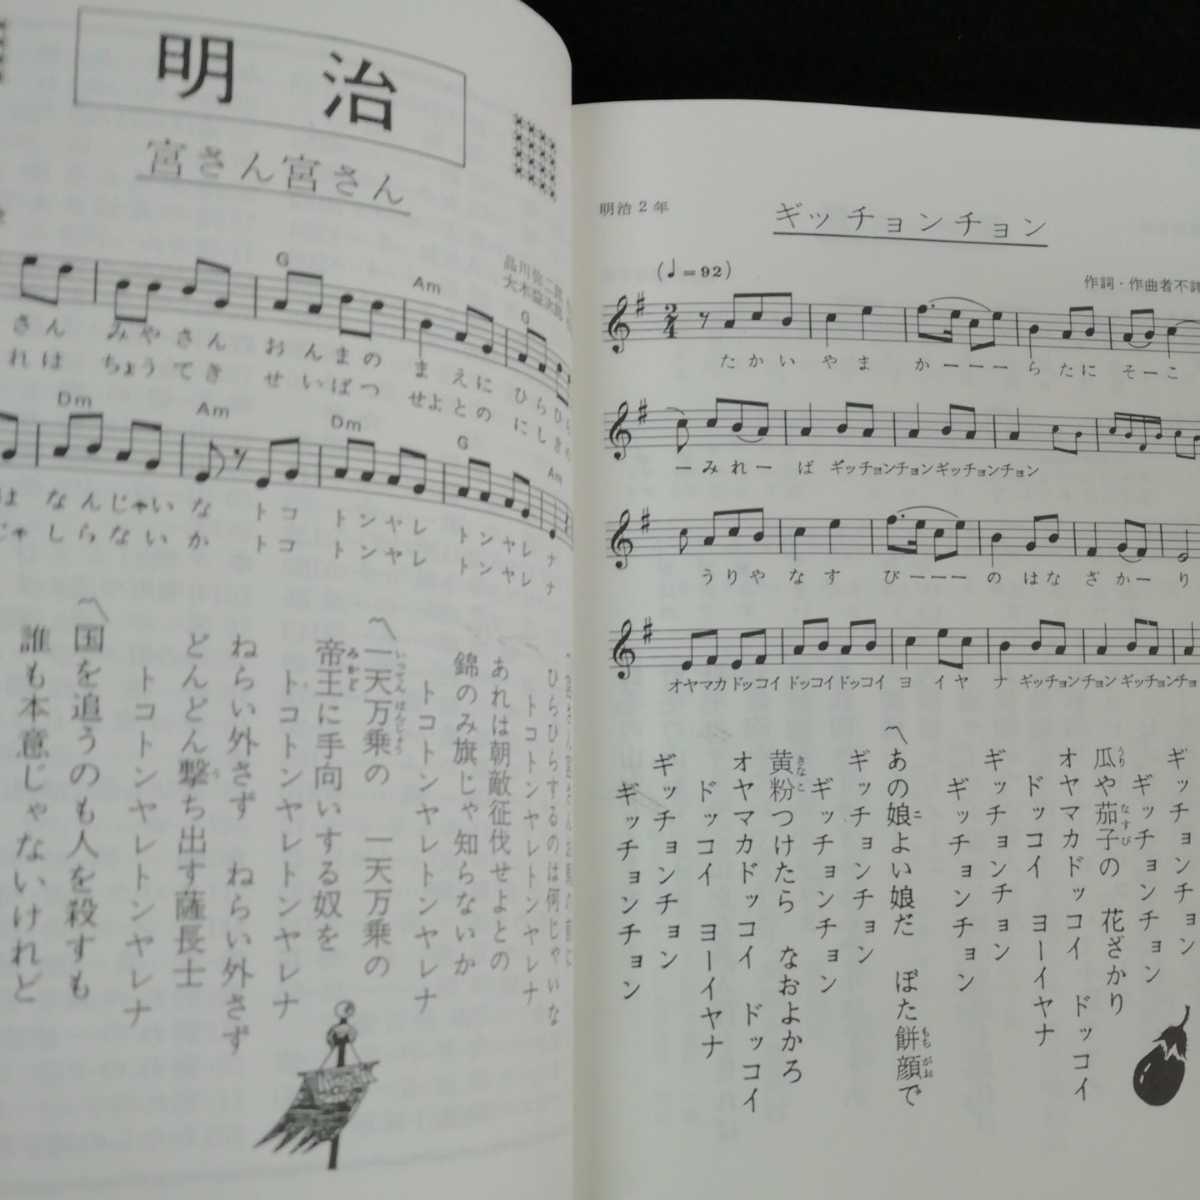 明治
宮さん宮さん
G
Am
G
さん みやさん おんまの まえに ひらひら
れは ちょうてき せいばつ せよとの にしきの
Dm
Am
Dm
G
Am
なんじゃいな トコ トンヤレ トンヤレ ナ
しらないか トコ トンヤレ トンヤレ ナ
ひらひらするのは何じゃいな
トコトンヤレトンヤレナ
あれは朝敵征伐せよとの
錦のみ旗じゃ知らないか
トコトンヤレトンヤレナ
〽一天万乗の 一天万乗の
帝王に手向いする奴を
トコトンヤレトンヤレナ
ねらい外さず ねらい外さず
どんどん撃ち出す薩長士
トコトンヤレトンヤレナ
〽国を追うのも人を殺すも
誰も本意じゃないけれど
明治2年
ギッチョンチョン
(♩=92)
作詞・作曲者不詳
たかい やま かーーー らたに そーこ
ーみれー ば ギッチョンチョンギッチョンチョン
うりや なす びーーー のはな ざかー り
オヤマカ ドッコイ ドッコイドッコイ ヨ イヤ ナ ギッチョンチョン ギッチョンチョ
ギッチョンチョン
ギッチョンチョン
瓜や茄子の 花ざかり
オヤマカドッコイ ドッコイ
ドッコイ ヨーイヤナ
ギッチョンチョン
ギッチョンチョン
〽あの娘よい娘だ ぼた餅顔で
ギッチョンチョン
ギッチョンチョン
黄粉つけたら なおよかろ
オヤマカドッコイ ドッコイ
ドッコイ ヨーイヤナ
ギッチョンチョン
ギッチョンチョン